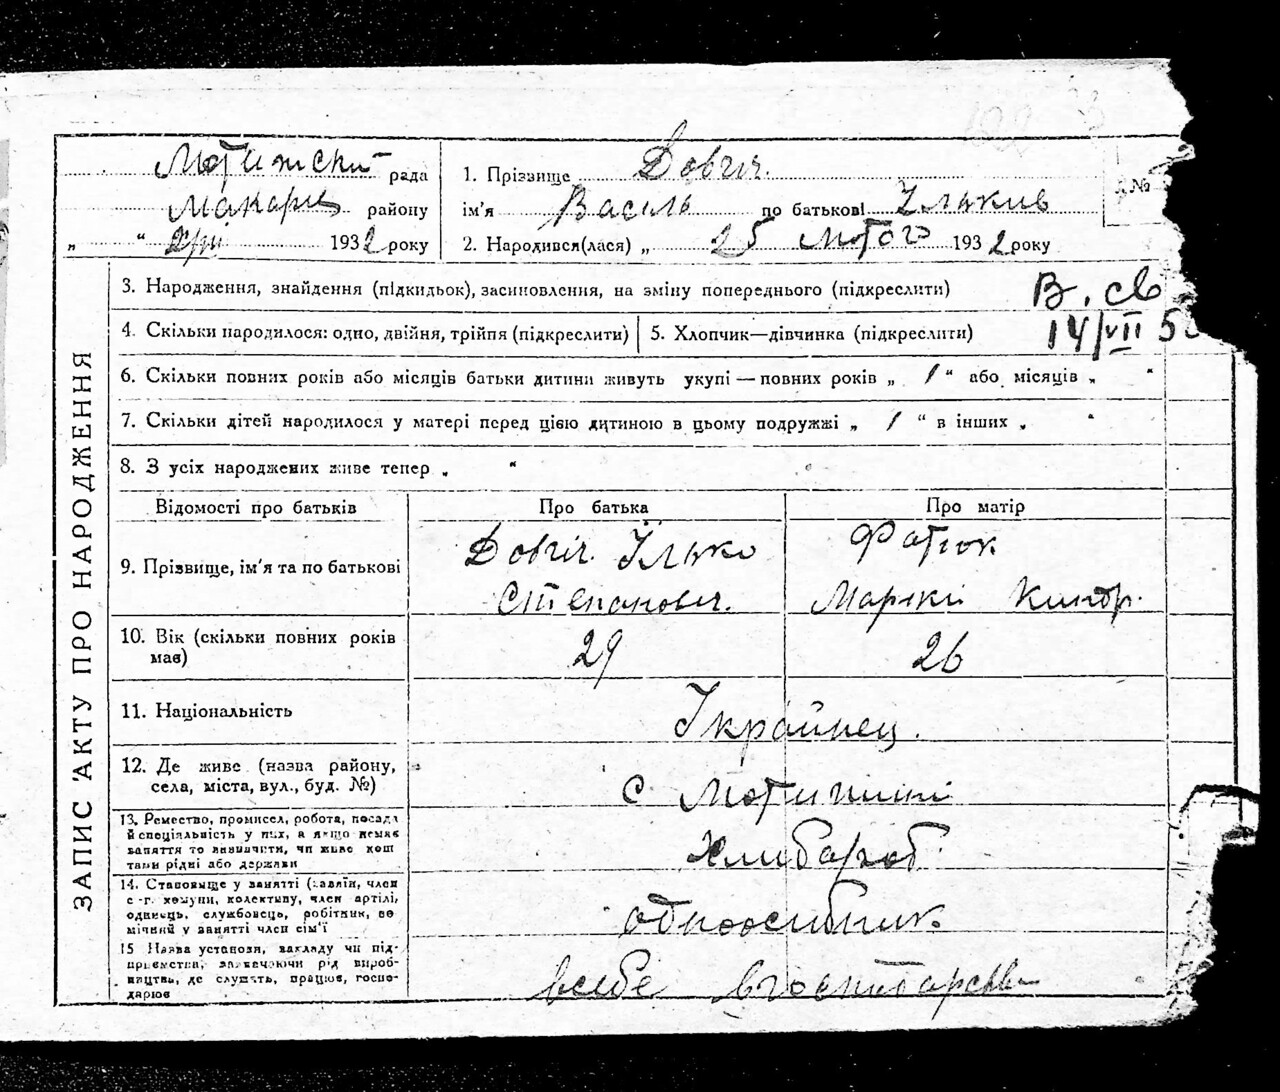 Мотижский рада
Макарів району
" " 1932 року
1. Прізвище Довгіч.
ім'я Василь по батькові Ількив
2. Народився(лася) " 25 лютого 1932 року
№
ЗАПИС АКТУ ПРО НАРОДЖЕННЯ
3. Народження, знайдення (підкидьок), засиновлення, на зміну попереднього (підкреслити)
В. св
14/VII 5
4. Скільки народилося: одно, двійня, трійня (підкреслити)
5. Хлопчик—дівчинка (підкреслити)
6. Скільки повних років або місяців батьки дитини живуть укупі — повних років „ 1 “ або місяців „ “
7. Скільки дітей народилося у матері перед цією дитиною в цьому подружжі „ 1 “ в інших „ “
8. З усіх народжених живе тепер „ “
Відомості про батьків
Про батька
Про матір
9. Прізвище, ім'я та по батькові
Довгіч. Ілько
Степанович.
Фатюк
Киндр.
10. Вік (скільки повних років має)
29
26
11. Національність
Украйнец.
12. Де живе (назва району,
села, міста, вул., буд. №)
с Мотижині
13. Ремество, промисел, робота, посада
й спеціяльність у них, а якщо немає
заняття то визначити, чи живе кош
тами рідні або держави
Хлибароб
14. Становище у занятті (хазяїн, член
с.-г. комуни, колективу, член артілі,
одинець, службовець, робітник, по
мічний у занятті член сім'ї
одноосибник
15 Назва установи, закладу чи під-
приємства, зазначаючи рід вироб-
ництва, де служить, працює, госпо-
дарює
всебе вгосподарсве